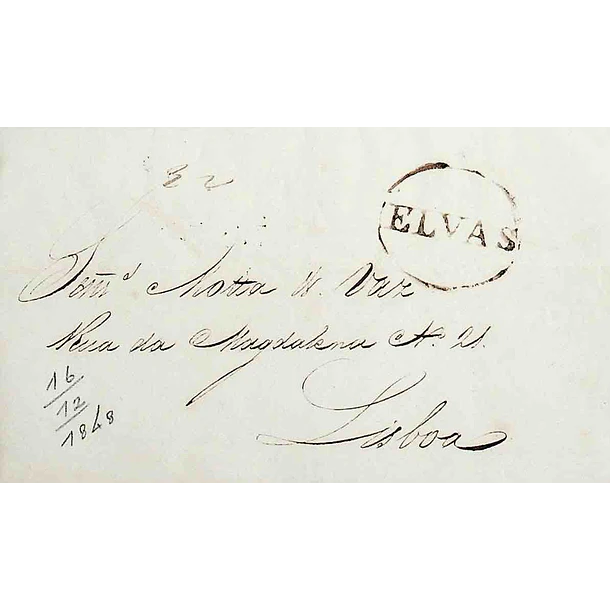 ELVAS
Motta & Vaz
Rua da Magdalena Nº 21.
Lisboa
16
12
1848